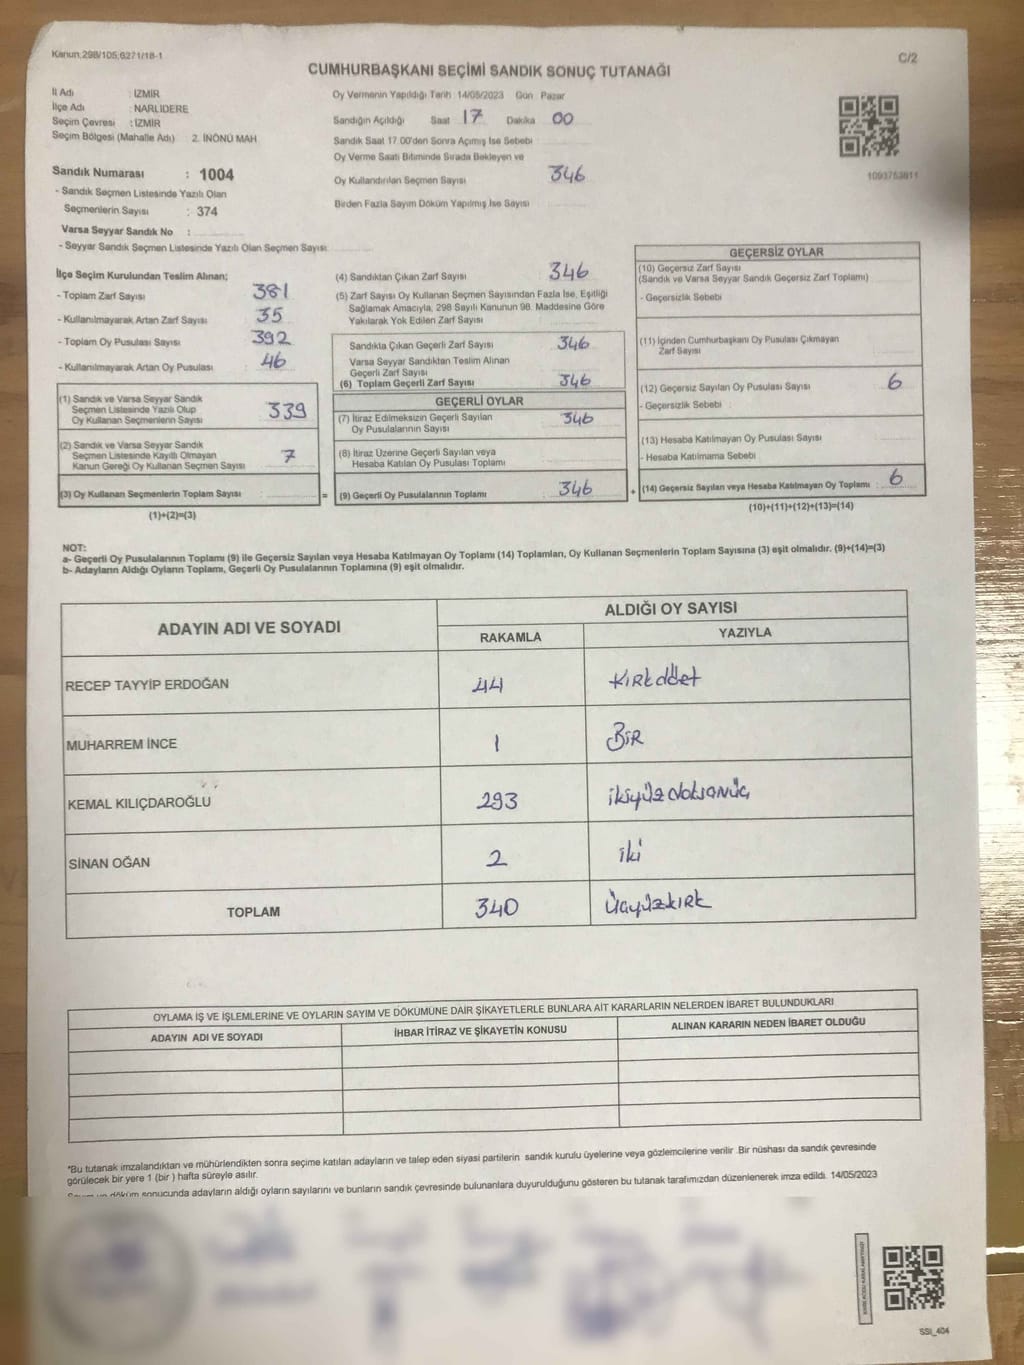 Kanun:298/105;6271/18-1
C/2
CUMHURBAŞKANI SEÇİMİ SANDIK SONUÇ TUTANAĞI
İl Adı : İZMİR
İlçe Adı : NARLIDERE
Seçim Çevresi : İZMİR
Seçim Bölgesi (Mahalle Adı) 2. İNÖNÜ MAH
Sandık Numarası : 1004
- Sandık Seçmen Listesinde Yazılı Olan
Seçmenlerin Sayısı : 374
Varsa Seyyar Sandık No :
- Seyyar Sandık Seçmen Listesinde Yazılı Olan Seçmen Sayısı:
Oy Vermenin Yapıldığı Tarih 14/05/2023 Gün Pazar
Sandığın Açıldığı Saat 17 Dakika 00
Sandık Saat 17.00'den Sonra Açımış İse Sebebi
Oy Verme Saati Bitiminde Sırada Bekleyen ve
Oy Kullandırılan Seçmen Sayısı 346
Birden Fazla Sayım Döküm Yapılmış İse Sayısı
1093753811
İlçe Seçim Kurulundan Teslim Alınan;
- Toplam Zarf Sayısı : 381
- Kullanılmayarak Artan Zarf Sayısı : 35
- Toplam Oy Pusulası Sayısı : 392
- Kullanılmayarak Artan Oy Pusulası : 46
(1) Sandık ve Varsa Seyyar Sandık
Seçmen Listesinde Yazılı Olup
Oy Kullanan Seçmenlerin Sayısı : 339
(2) Sandık ve Varsa Seyyar Sandık
Seçmen Listesinde Kayıtlı Olmayan
Kanun Gereği Oy Kullanan Seçmen Sayısı : 7
(3) Oy Kullanan Seçmenlerin Toplam Sayısı : =
(1)+(2)=(3)
(4) Sandıktan Çıkan Zarf Sayısı 346
(5) Zarf Sayısı Oy Kullanan Seçmen Sayısından Fazla İse, Eşitliği
Sağlamak Amacıyla, 298 Sayılı Kanunun 98. Maddesine Göre
Yakılarak Yok Edilen Zarf Sayısı
Sandıkta Çıkan Geçerli Zarf Sayısı 346
Varsa Seyyar Sandıktan Teslim Alınan
Geçerli Zarf Sayısı
(6) Toplam Geçerli Zarf Sayısı 346
GEÇERLİ OYLAR
(7) İtiraz Edilmeksizin Geçerli Sayılan
Oy Pusulalarının Sayısı 346
(8) İtiraz Üzerine Geçerli Sayılan veya
Hesaba Katılan Oy Pusulası Toplamı
(9) Geçerli Oy Pusulalarının Toplamı 346 +
GEÇERSİZ OYLAR
(10) Geçersiz Zarf Sayısı
(Sandık ve Varsa Seyyar Sandık Geçersiz Zarf Toplamı)
- Geçersizlik Sebebi
(11) İçinden Cumhurbaşkanı Oy Pusulası Çıkmayan
Zarf Sayısı
(12) Geçersiz Sayılan Oy Pusulası Sayısı 6
- Geçersizlik Sebebi :
(13) Hesaba Katılmayan Oy Pusulası Sayısı
- Hesaba Katılmama Sebebi
(14) Geçersiz Sayılan veya Hesaba Katılmayan Oy Toplamı : 6
(10)+(11)+(12)+(13)=(14)
NOT:
a- Geçerli Oy Pusulalarının Toplamı (9) ile Geçersiz Sayılan veya Hesaba Katılmayan Oy Toplamı (14) Toplamları, Oy Kullanan Seçmenlerin Toplam Sayısına (3) eşit olmalıdır. (9)+(14)=(3)
b- Adayların Aldığı Oyların Toplamı, Geçerli Oy Pusulalarının Toplamına (9) eşit olmalıdır.
ADAYIN ADI VE SOYADI ALDIĞI OY SAYISI
RAKAMLA YAZIYLA
RECEP TAYYİP ERDOĞAN 44 KIRKdöet
MUHARREM İNCE 1 BİR
KEMAL KILIÇDAROĞLU 293 ikiyüzdoksanüç
SİNAN OĞAN 2 iki
TOPLAM 340 üçyüzKIRK
OYLAMA İŞ VE İŞLEMLERİNE VE OYLARIN SAYIM VE DÖKÜMÜNE DAİR ŞİKAYETLERLE BUNLARA AİT KARARLARIN NELERDEN İBARET BULUNDUKLARI
ADAYIN ADI VE SOYADI İHBAR İTİRAZ VE ŞİKAYETİN KONUSU ALINAN KARARIN NEDEN İBARET OLDUĞU
*Bu tutanak imzalandıktan ve mühürlendikten sonra seçime katılan adayların ve talep eden siyasi partilerin sandık kurulu üyelerine veya gözlemcilerine verilir .Bir nüshası da sandık çevresinde
görülecek bir yere 1 (bir ) hafta süreyle asılır.
Sayım ve döküm sonucunda adayların aldığı oyların sayılarını ve bunların sandık çevresinde bulunanlara duyurulduğunu gösteren bu tutanak tarafımızdan düzenlenerek imza edildi. 14/05/2023
SSI_404